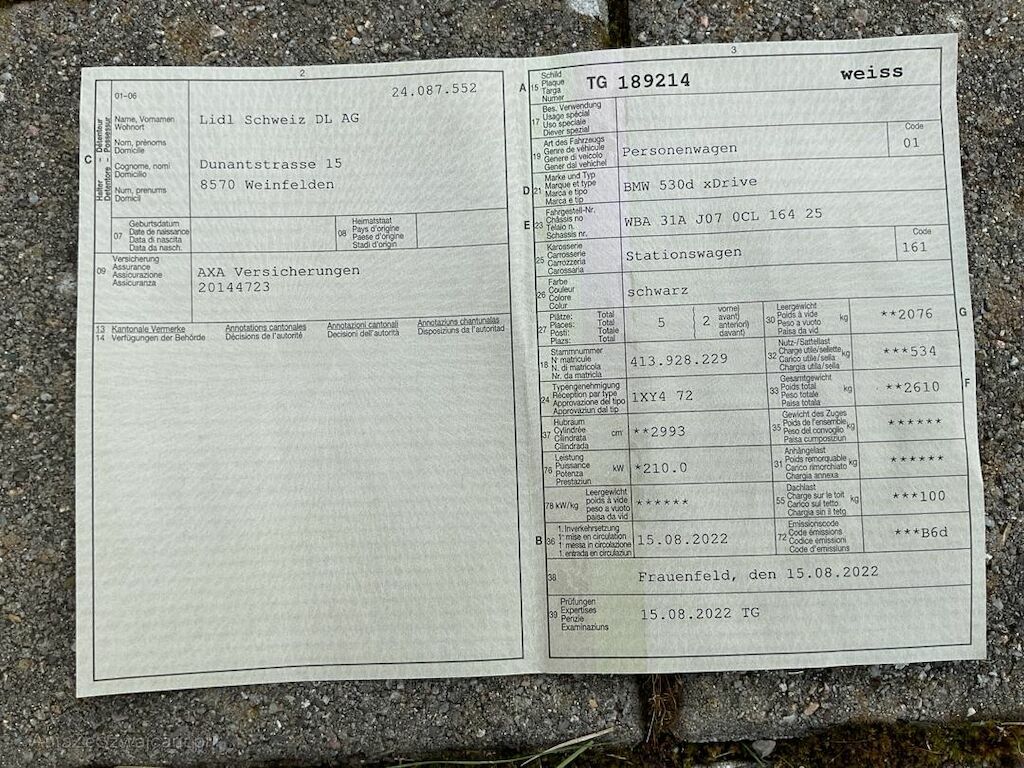 2
01-06
24.087.552
C
Halter Détenteur
Detentore Possessur
Name, Vornamen
Wohnort
Nom, prénoms
Domicile
Cognome, nomi
Domicilio
Num, prenums
Domicil
Lidl Schweiz DL AG
Dunantstrasse 15
8570 Weinfelden
07
Geburtsdatum
Date de naissance
Data di nascita
Data da nasch.
08
Heimatstaat
Pays d'origine
Paese d'origine
Stadi d'origin
09
Versicherung
Assurance
Assicurazione
Assicuranza
AXA Versicherungen
20144723
13 Kantonale Vermerke
14 Verfügungen der Behörde
Annotations cantonales
Décisions de l'autorité
Annotazioni cantonali
Decisioni dell'autorità
Annotaziuns chantunalas
Disposiziuns da l'autoritad
3.
A 15
Schild
Plaque
Targa
Numer
TG 189214 weiss
17
Bes. Verwendung
Usage spécial
Uso speciale
Diever spezial
19
Art des Fahrzeugs
Genre de véhicule
Genere di veicolo
Gener dal vehichel
Personenwagen
Code
01
D 21
Marke und Typ
Marque et type
Marca e tipo
Marca e tip
BMW 530d xDrive
E 23
Fahrgestell-Nr.
Châssis no
Telaio n.
Schassis nr.
WBA 31A J07 0CL 164 25
25
Karosserie
Carrosserie
Carrozzeria
Carossaria
Stationswagen
Code
161
26
Farbe
Couleur
Colore
Colur
schwarz
27
Plätze: Total
Places: Total
Posti: Totale
Plazs: Total
5
2
vorne)
avant)
anteriori)
davant)
30
Leergewicht
Poids à vide
Peso a vuoto
Paisa da vid
kg
**2076
G
18
Stammnummer
N° matricule
N. di matricola
Nr. da matricla
413.928.229
32
Nutz-/Sattellast
Charge utile/sellette
Carico utile/sella
Chargia utila/sella
kg
***534
24
Typengenehmigung
Réception par type
Approvazione del tipo
Approvaziun dal tip
1XY4 72
33
Gesamtgewicht
Poids total
Peso totale
Paisa totala
kg
**2610
F
37
Hubraum
Cylindrée
Cilindrata
Cilindrada
cm³
**2993
35
Gewicht des Zuges
Poids de l'ensemble
Peso del convoglio
Paisa cumposiziun
kg
******
76
Leistung
Puissance
Potenza
Prestaziun
kW
*210.0
31
Anhängelast
Poids remorquable
Carico rimorchiato
Chargia annexa
kg
******
78 kW/kg
Leergewicht
poids à vide
peso a vuoto
paisa da vid
******
55
Dachlast
Charge sur le toit
Carico sul tetto
Chargia sin il tetg
kg
***100
B 36
1. Inverkehrsetzung
1re mise en circulation
1a messa in circolazione
1. entrada en circulaziun
15.08.2022
72
Emissionscode
Code émissions
Codice emissioni
Code d'emissiuns
***B6d
38
Frauenfeld, den 15.08.2022
39
Prüfungen
Expertises
Perizie
Examinaziuns
15.08.2022 TG